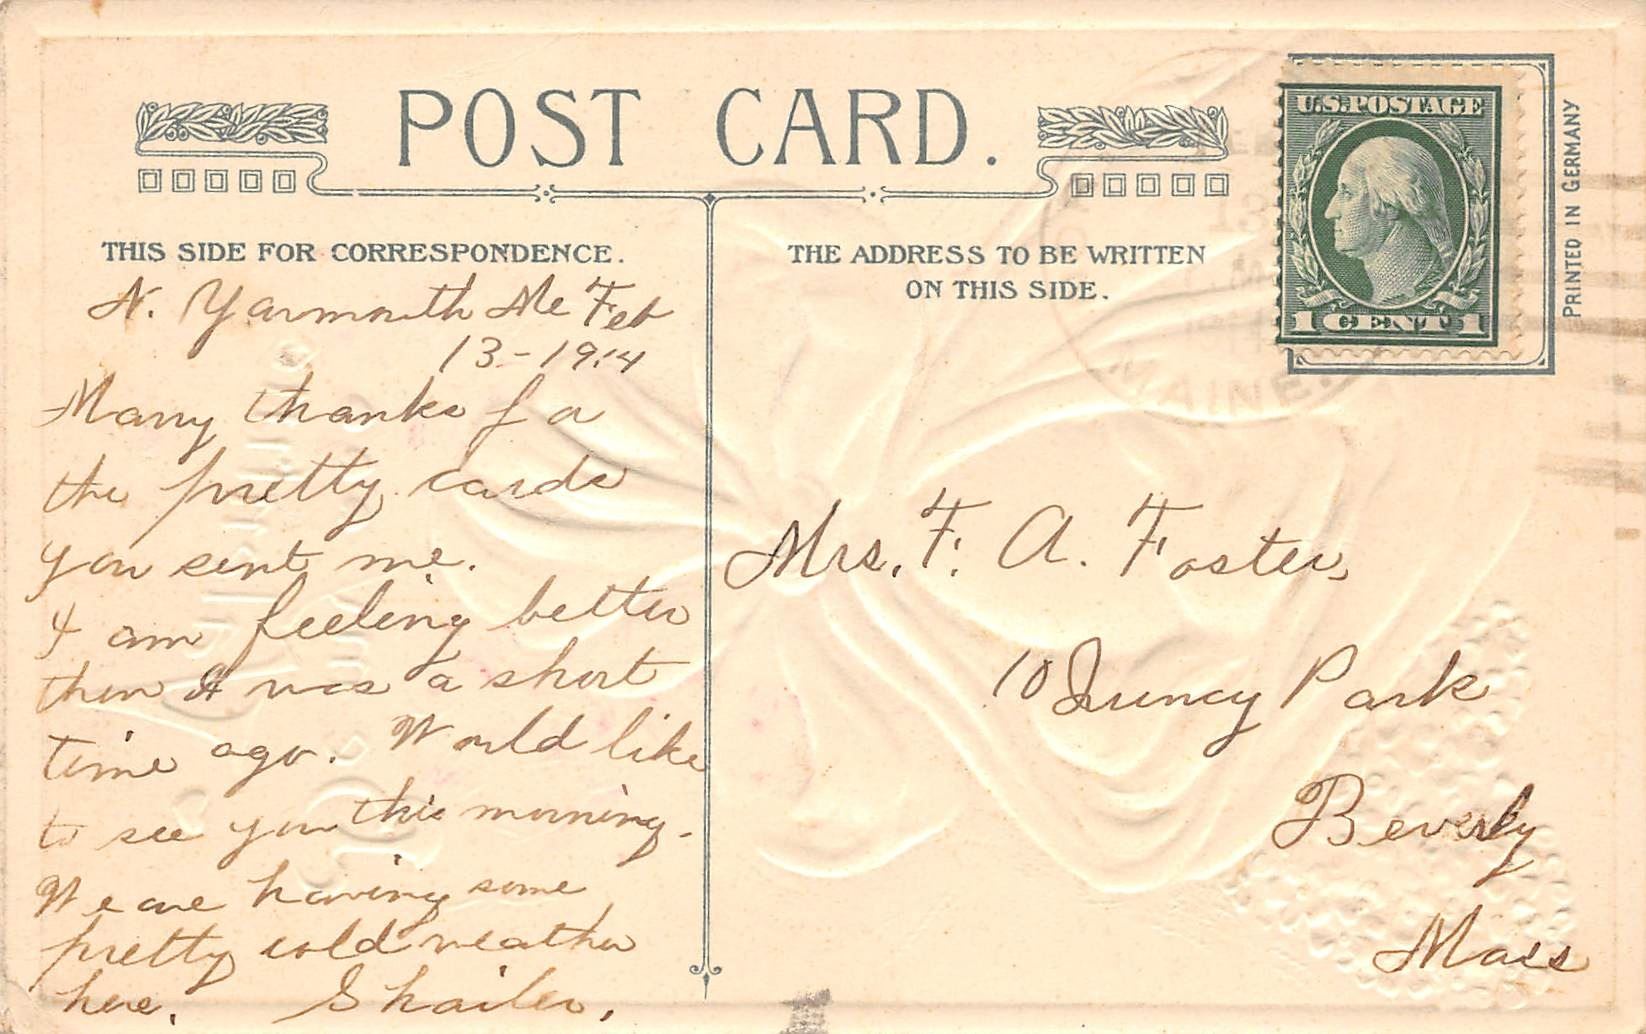 POST CARD.
THIS SIDE FOR CORRESPONDENCE.
N. Yarmouth Me Feb
13-1914
Many thanks for
the pretty cards
you sent me.
I am feeling better
then I was a short
time ago. Would like
to see you this morning.
We are having some
pretty cold weather
here. Shailer.
THE ADDRESS TO BE WRITTEN
ON THIS SIDE.
U.S. POSTAGE
1 CENT 1
PRINTED IN GERMANY
13
MAINE.
Mrs. F. A. Foster,
10 Quincy Park
Beverly
Mass